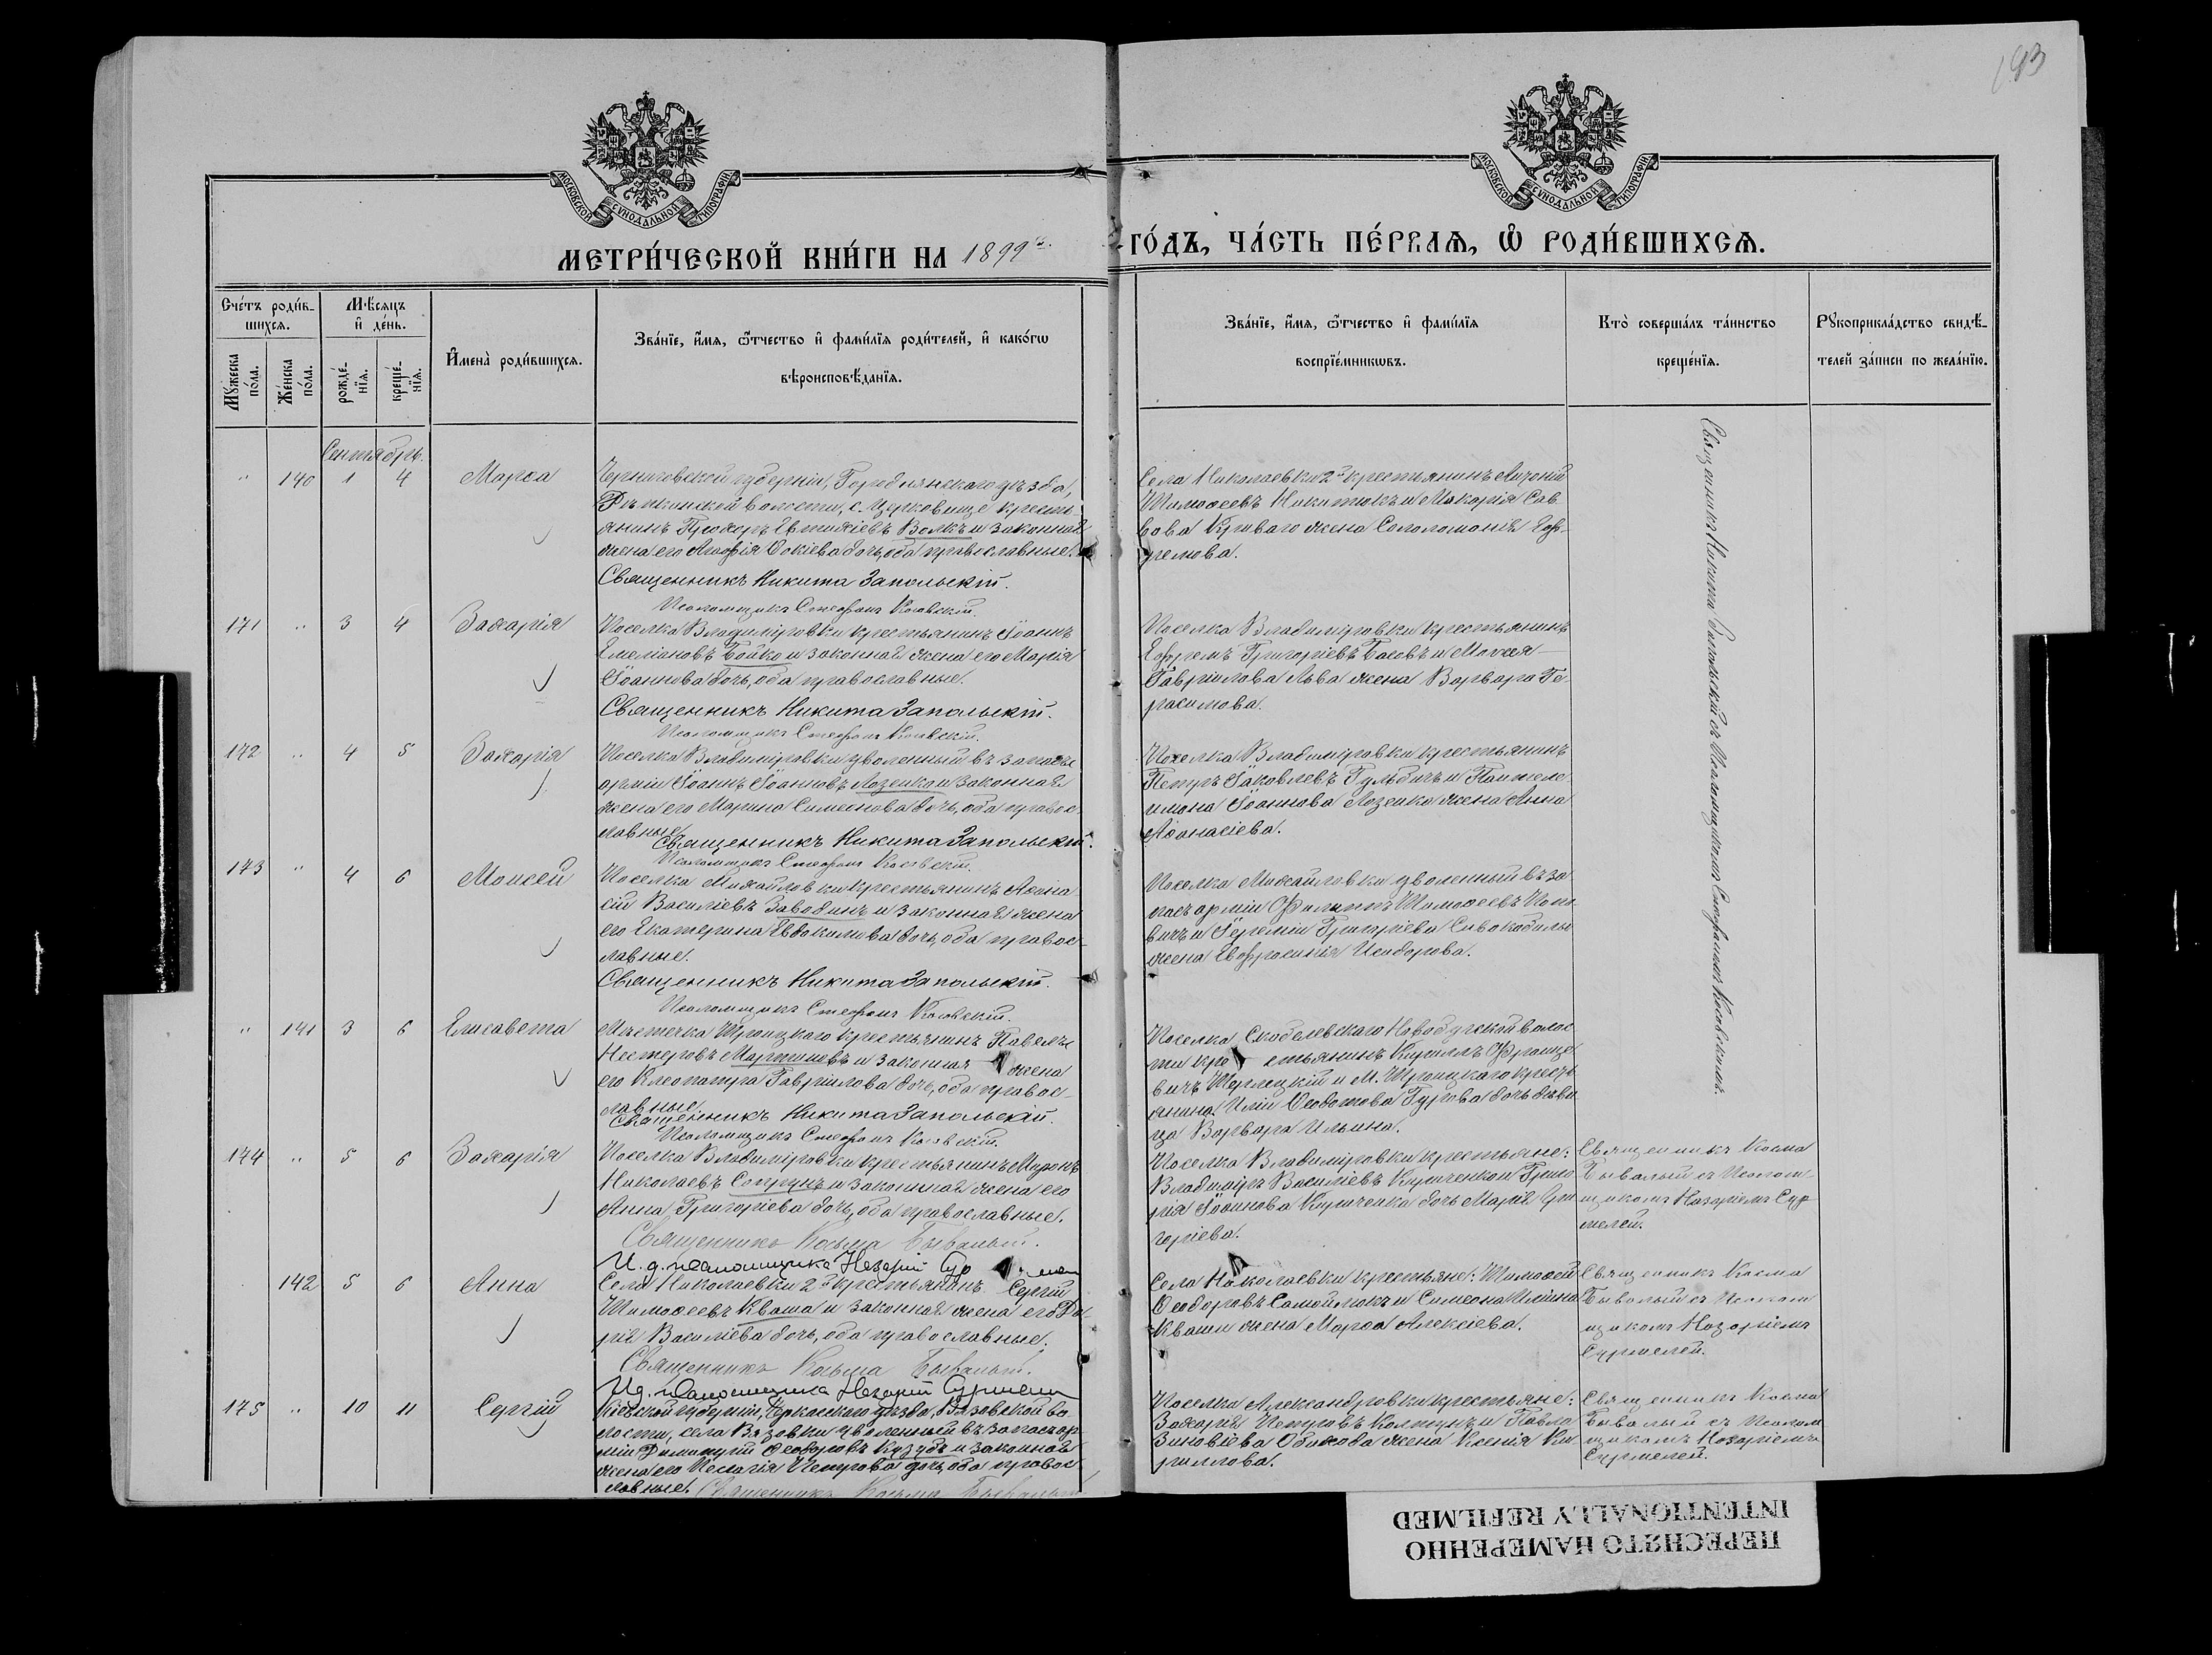 193
МОСКОВСКОЙ СУНОДАЛЬНОЙ ТИПОГРАФІИ
МОСКОВСКОЙ СУНОДАЛЬНОЙ ТИПОГРАФІИ
МЕТРИ́ЧЕСКОЙ КНИ́ГИ НА 1899 г.
ГО́ДЪ, ЧА́СТЬ ПЕ́РВАѦ, Ѡ҆ РОДИ́ВШИХСѦ.
Сче́тъ роди́в-
шихсѧ.
Мꙋ́жеска по́ла.
Же́нска по́ла.
Мѣ́сяцъ
и҆ де́нь.
рожде́-
нїѧ.
креще́-
нїѧ.
И҆мена̀ роди́вшихсѧ.
Зва́нїе, и҆́мѧ, ѻ҆́тчество и҆ фами́лїѧ роди́телей, и҆ како́гѡ
вѣроисповѣ́данїѧ.
Зва́нїе, и҆́мѧ, ѻ҆́тчество и҆ фами́лїѧ
воспрїе́мникѡвъ.
Кто̀ соверша́лъ та́инство
креще́нїѧ.
Рꙋкоприкла́дство свидѣ́-
телей за́писи по жела́нїю.
Сентябрь.
" 140 1 4 Марѳа
Черниговской губерніи, Городнянскаго уѣзда,
волости, с. Церковище кресть-
янинъ Евтихіевъ Волкъ и законная
жена его Агафія Фокіева дочь, оба православные.
Священникъ Никита Запольскій.
Псаломщикъ Стефанъ Косовскій.
Села Николаевки 2й крестьянинъ Антоній
Тимоѳеевъ Никитюкъ и Макарія Сав-
вова Криваго жена Соломонія Еф-
ремова.
Священникъ Никита Запольскій съ Псаломщикомъ Стефаномъ Косовскимъ.
171 " 3 4 Захарія
Поселка Владиміровки крестьянинъ Іоаннъ
Емеліановъ Бойко и законная жена его Марія
Іоаннова дочь, оба православные.
Священникъ Никита Запольскій.
Псаломщикъ Стефанъ Косовскій.
Поселка Владиміровки крестьянинъ
Ефремъ Григоріевъ Басовъ и Моисея
Гавріилова Льва жена Варвара Ге-
расимова.
172 " 4 5 Захарія
Поселка Владиміровки уволенный въ запасъ
арміи Іоаннъ Іоанновъ Лозенко и законная
жена его Марина Симеонова дочь, оба правос-
лавные.
Священникъ Никита Запольскій.
Псаломщикъ Стефанъ Косовскій.
Поселка Владиміровки крестьянинъ
Петръ Іаковлевъ Гульбичъ и Пантеле-
имона Іоаннова Лозенко жена Анна
Аѳанасіева.
173 " 4 6 Моисей
Поселка Михайловки крестьянинъ Аѳана-
сій Василіевъ Заводинъ и законная жена
его Екатерина Евдокимова дочь, оба правос-
лавные.
Священникъ Никита Запольскій.
Псаломщикъ Стефанъ Косовскій.
Поселка Михайловки уволенный въ за-
пасъ арміи Филиппъ Тимоѳеевъ Попо-
вичъ и Іереміи Григоріева Сивокобылы
жена Евфросинія Исидорова.
" 141 3 6 Елисавета
Мѣстечка Троицкаго крестьянинъ Павелъ
Несторовъ Мартиновъ и законная жена
его Клеопатра Гавріилова дочь, оба правос-
лавные.
Священникъ Никита Запольскій.
Псаломщикъ Стефанъ Косовскій.
Поселка Скобелевскаго Новобугской волос-
ти крестьянинъ Кириллъ Франце-
вичъ и м. Троицкаго кресть-
янина Иліи Ѳеодотова Гурова дочь дѣви-
ца Варвара Ильина.
174 " 5 6 Захарія
Поселка Владиміровки крестьянинъ Миронъ
Николаевъ Сопрунъ и законная жена его
Анна Григоріева дочь, оба православные.
Священникъ Косьма Бывалый.
И. д. псаломщика Назарій Сур мели
Поселка Владиміровки крестьяне:
Владиміръ Василіевъ Кушченко и Григо-
рія Іоаннова Кушченка дочь Марія Гри-
горіева.
Священникъ Косма
Бывалый съ Псалом-
щикомъ Назаріемъ Сур-
мелей.
142 5 6 Анна
Села Николаевки 2й крестьянинъ Сергій
Тимоѳеевъ Кваша и законная жена его Да-
рія Василіева дочь, оба православные.
Священникъ Косьма Бывалый.
И. д. псаломщика Назарій Сурмели
Села Николаевки крестьяне: Тимоѳей
Ѳеодоровъ Самойлюкъ и Симеона Иліина
Кваши жена Марѳа Алексіева.
Священникъ Косма
Бывалый съ Псалом
щикомъ Назаріемъ
Сурмелей.
175 " 10 11 Сергій
Кіевской губерніи, Черкасскаго уѣзда, Вязовской во-
лости, села Вязовки уволенный въ запасъ ар-
міи Димитрій Ѳеодоровъ Кузубъ и законная
жена его Пелагія Петрова дочь, оба правос
лавные. Священникъ Косьма Бывалый
Поселка Александровки крестьяне:
Захарія Петровъ Колтунъ и Павла
Зиновіева жена Ксенія Ки-
риллова.
Священникъ Косма
Бывалый съ Псалом
щикомъ Назаріемъ
Сурмелей.
ПЕРЕСНЯТО НАМЕРЕННО
INTENTIONALLY REFILMED